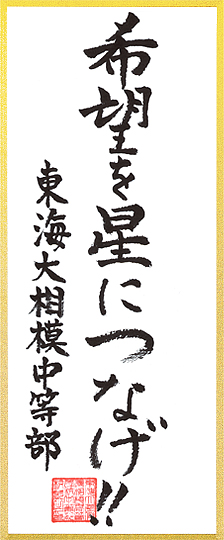 希望を星につなげ!!
東海大相模中等部